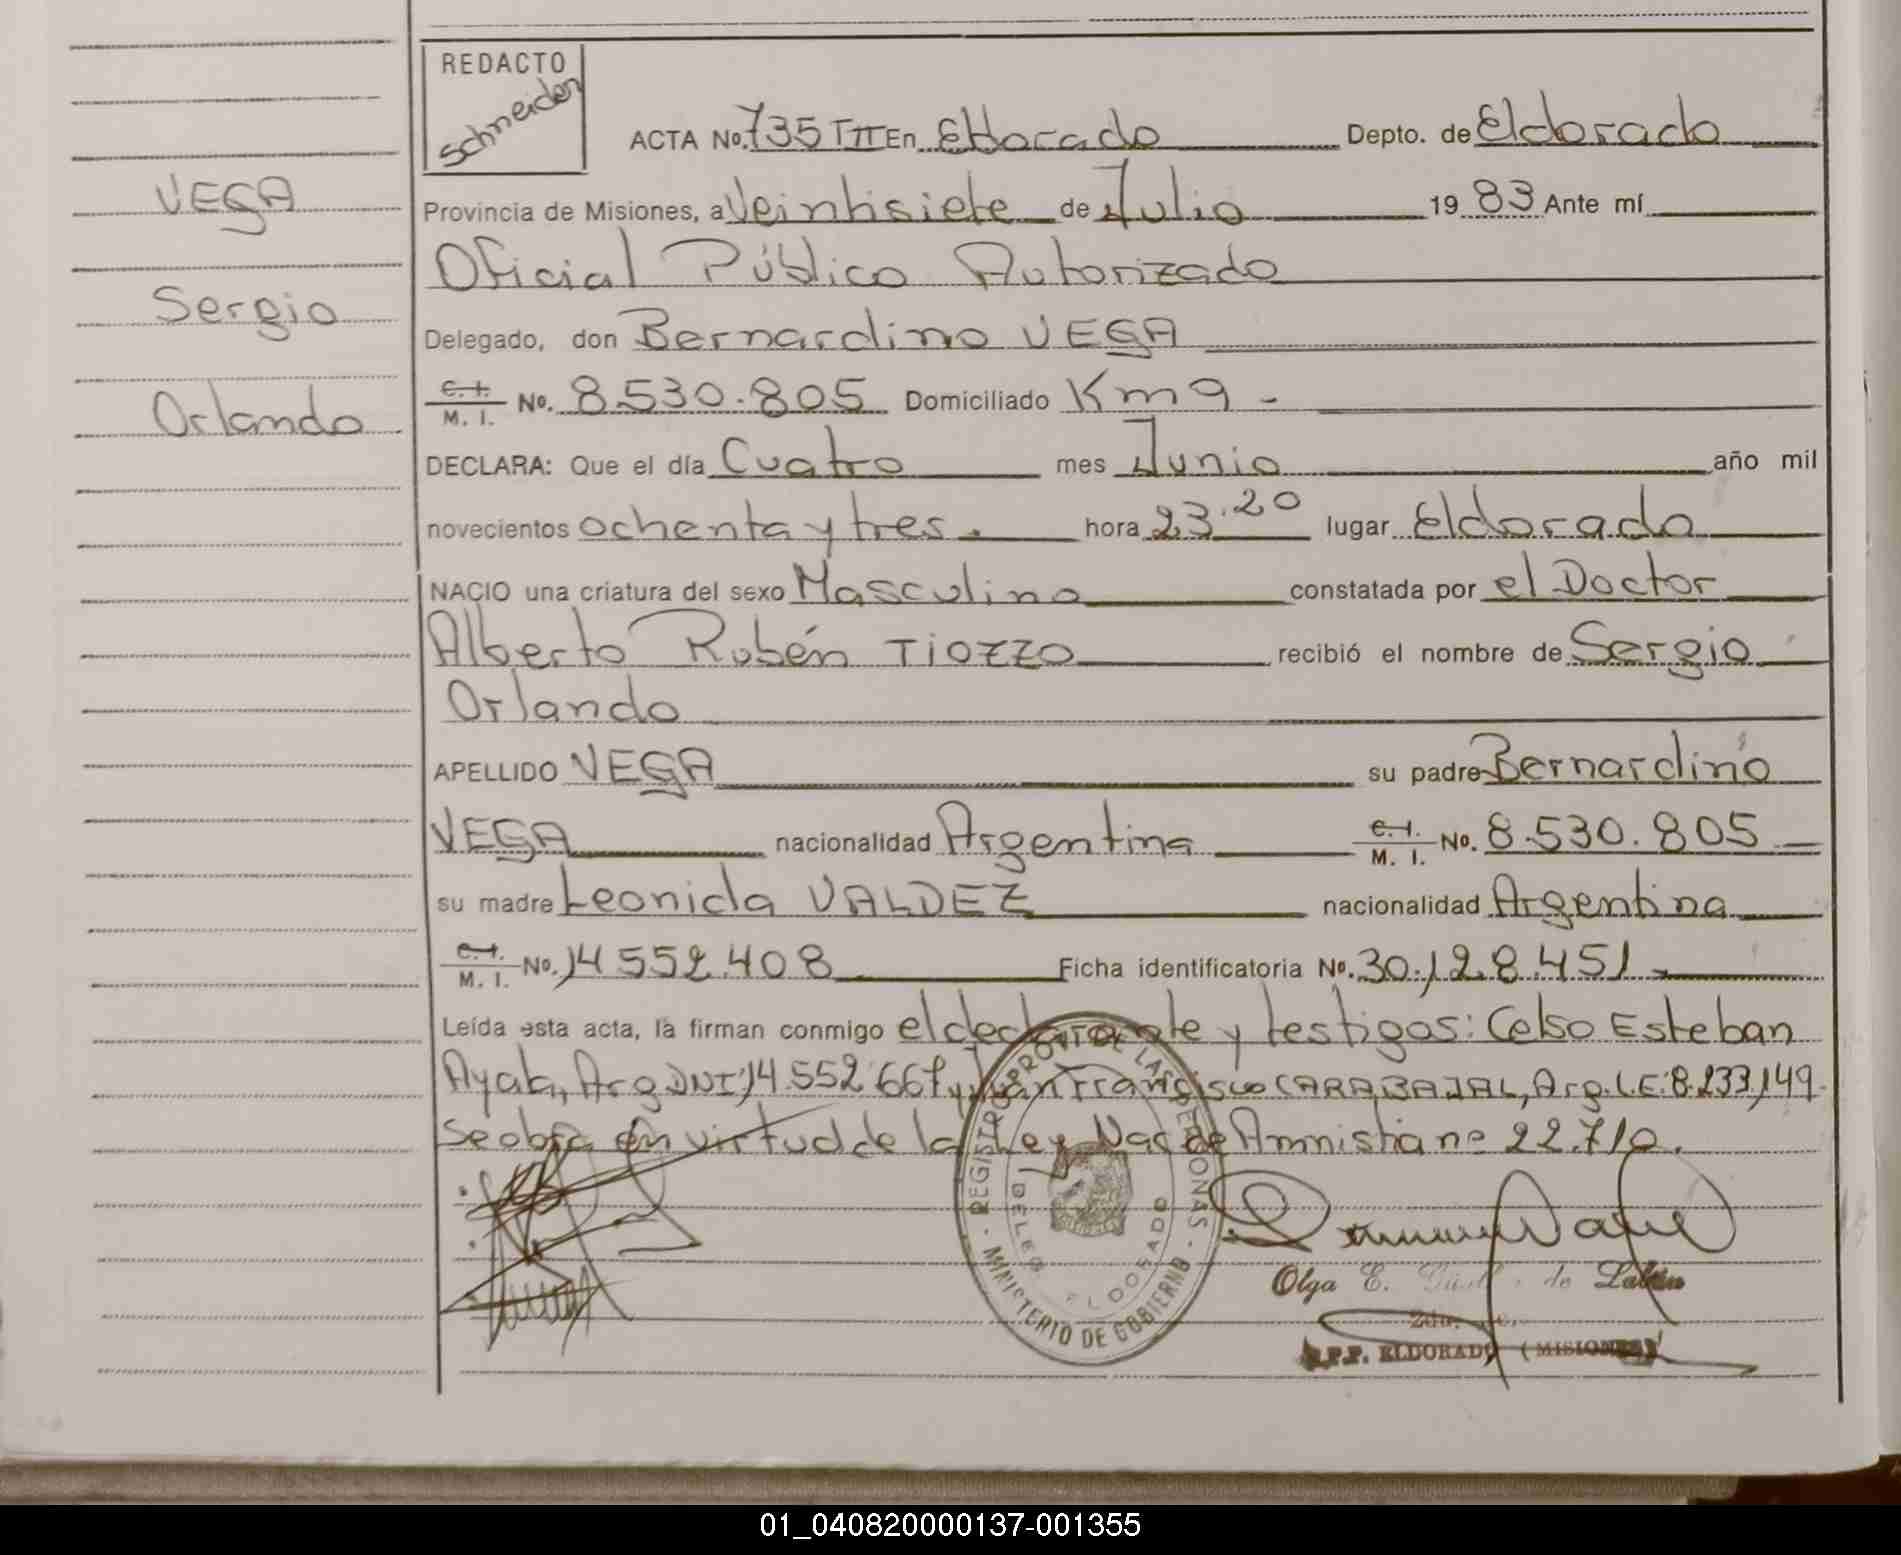 REDACTO
Schneider
ACTA No. 735 TII En Eldorado Depto. de Eldorado
VEGA
Provincia de Misiones, a Veintisiete de Julio 19 83 Ante mí
Oficial Público Autorizado
Sergio
Delegado, don Bernardino VEGA
C.I. M. I. No. 8.530.805 Domiciliado Km 9 -
Orlando
DECLARA: Que el día Cuatro mes Junio año mil
novecientos ochenta y tres. hora 23.20 lugar Eldorado
NACIO una criatura del sexo Masculino constatada por el Doctor
Alberto Rubén TIOZZO recibió el nombre de Sergio
Orlando
APELLIDO VEGA su padre Bernardino
VEGA nacionalidad Argentina C.I. M. I. No. 8.530.805
su madre Leonida VALDEZ nacionalidad Argentina
C.I. M. I. No. 14 552.408 Ficha identificatoria No. 30.128.451
Leída esta acta, la firman conmigo el declarante y testigos: Celso Esteban
Ayala, Arg. DNI: 14.552.667 y Juan Francisco CARABAJAL, Arg. L.E: 8.233.149.
Se obra en virtud de la Ley Nac de Amnistia nº 22.710.
REGISTRO PROV. DE LAS PERSONAS
DELEG. ELDORADO
MINISTERIO DE GOBIERNO
Olga E. de
R.P.P. ELDORADO (MISIONES)
01_040820000137-001355